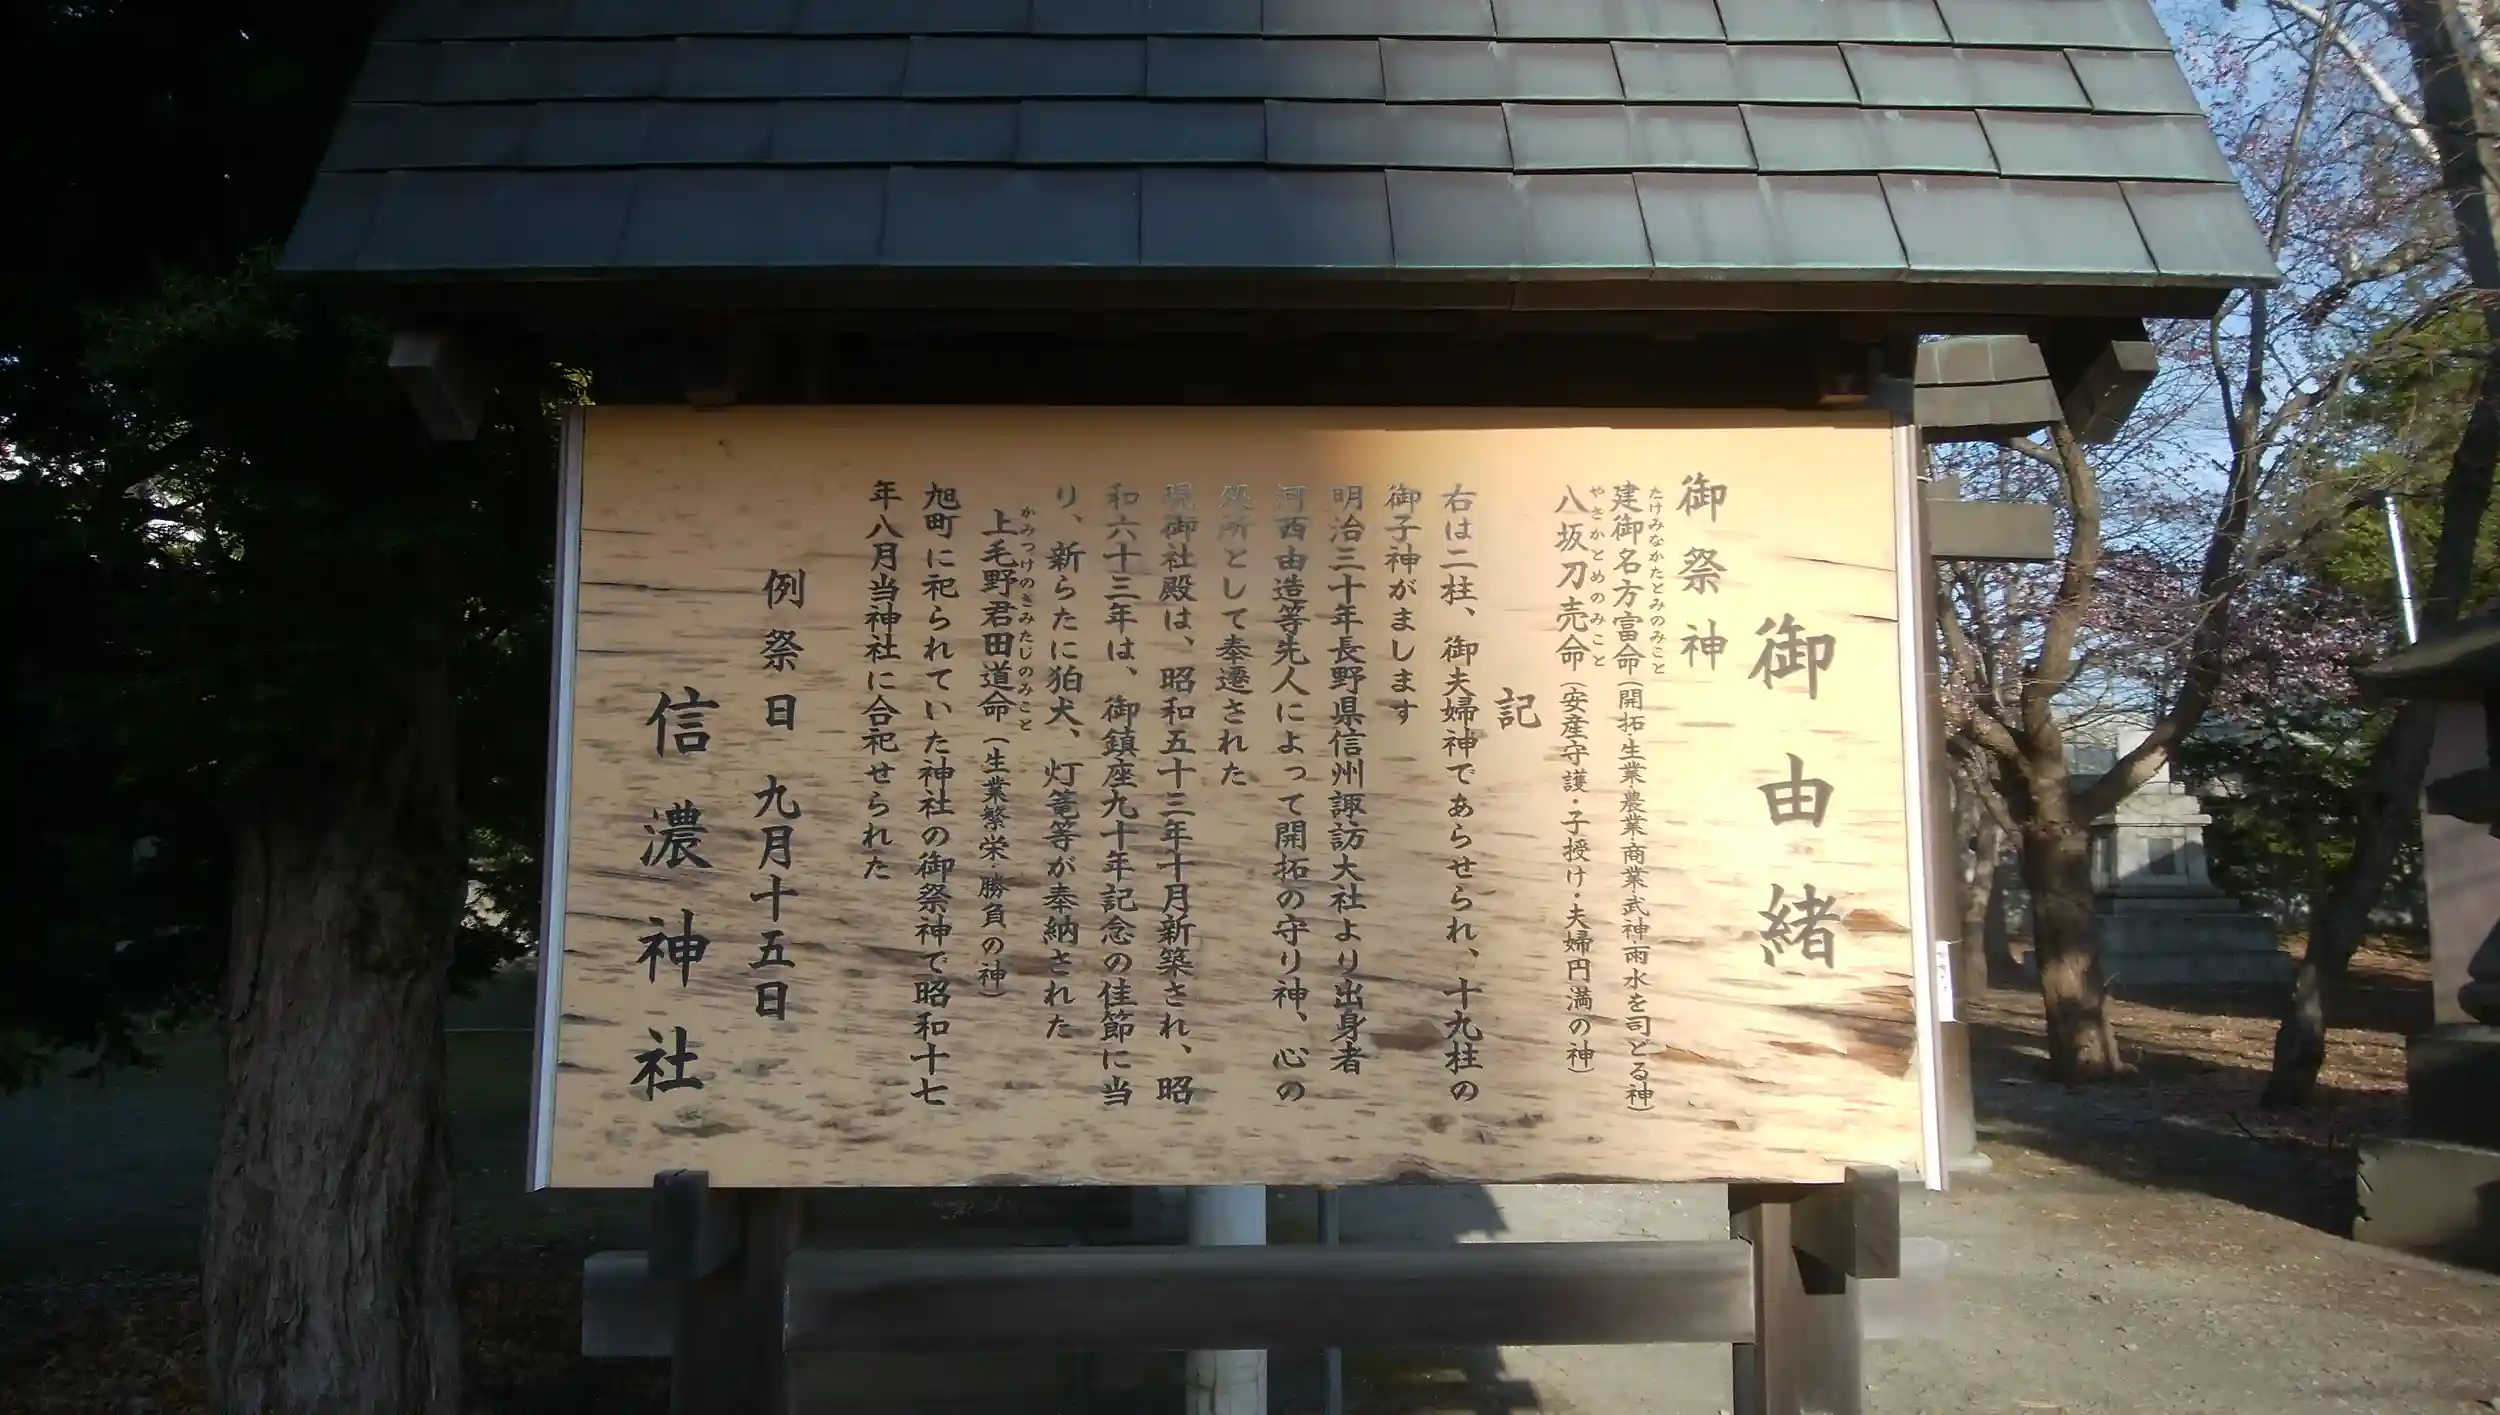 御由緒
御祭神
建御名方富命（開拓・生業・農業・商業・武神・雨水を司どる神）
たけみなかたとみのみこと
八坂刀売命（安産守護・子授け・夫婦円満の神）
やさかとめのみこと
記
右は二柱、御夫婦神であらせられ、十九柱の
御子神がまします
明治三十年長野県信州諏訪大社より出身者
河西由造等先人によって開拓の守り神、心の
処所として奉遷された
現御社殿は、昭和五十三年十月新築され、昭
和六十三年は、御鎮座九十年記念の佳節に当
り、新らたに狛犬、灯篭等が奉納された
上毛野君田道命（生業繁栄・勝負の神）
かみつけのきみたじのみこと
旭町に祀られていた神社の御祭神で昭和十七
年八月当神社に合祀せられた
例祭日 九月十五日
信濃神社